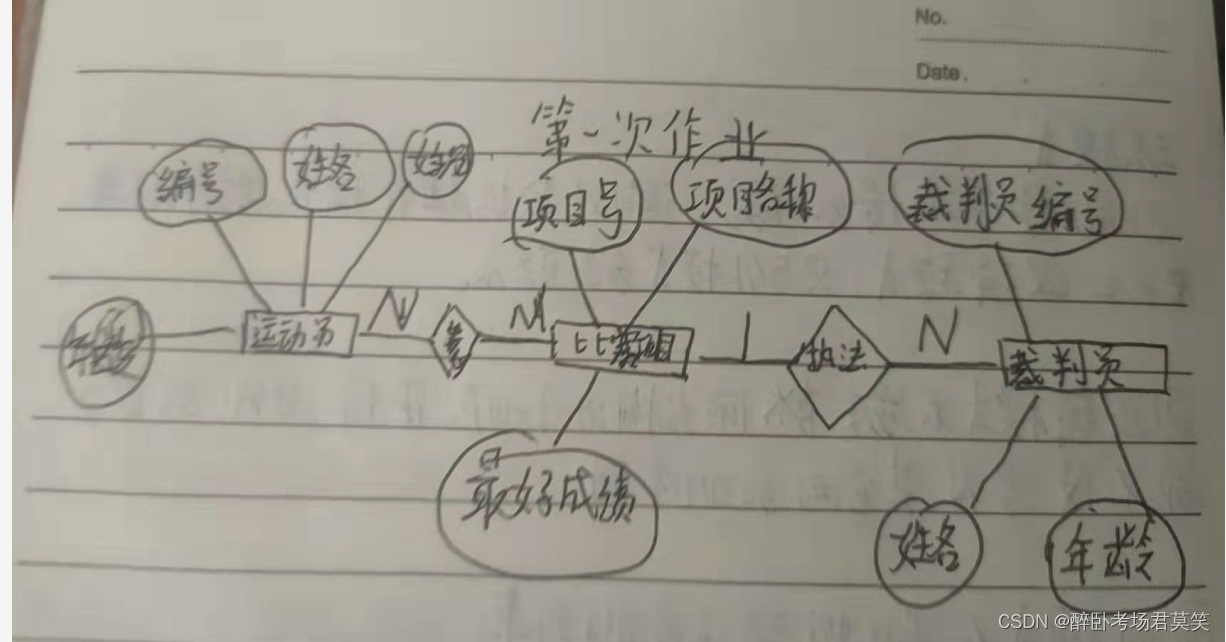 No.
Date.
第一次作业
编号
姓名
项目号
项目名称
裁判员编号
运动员
N
参
M
比赛项目
1
执法
N
裁判员
最好成绩
姓名
年龄
CSDN @醉卧考场君莫笑